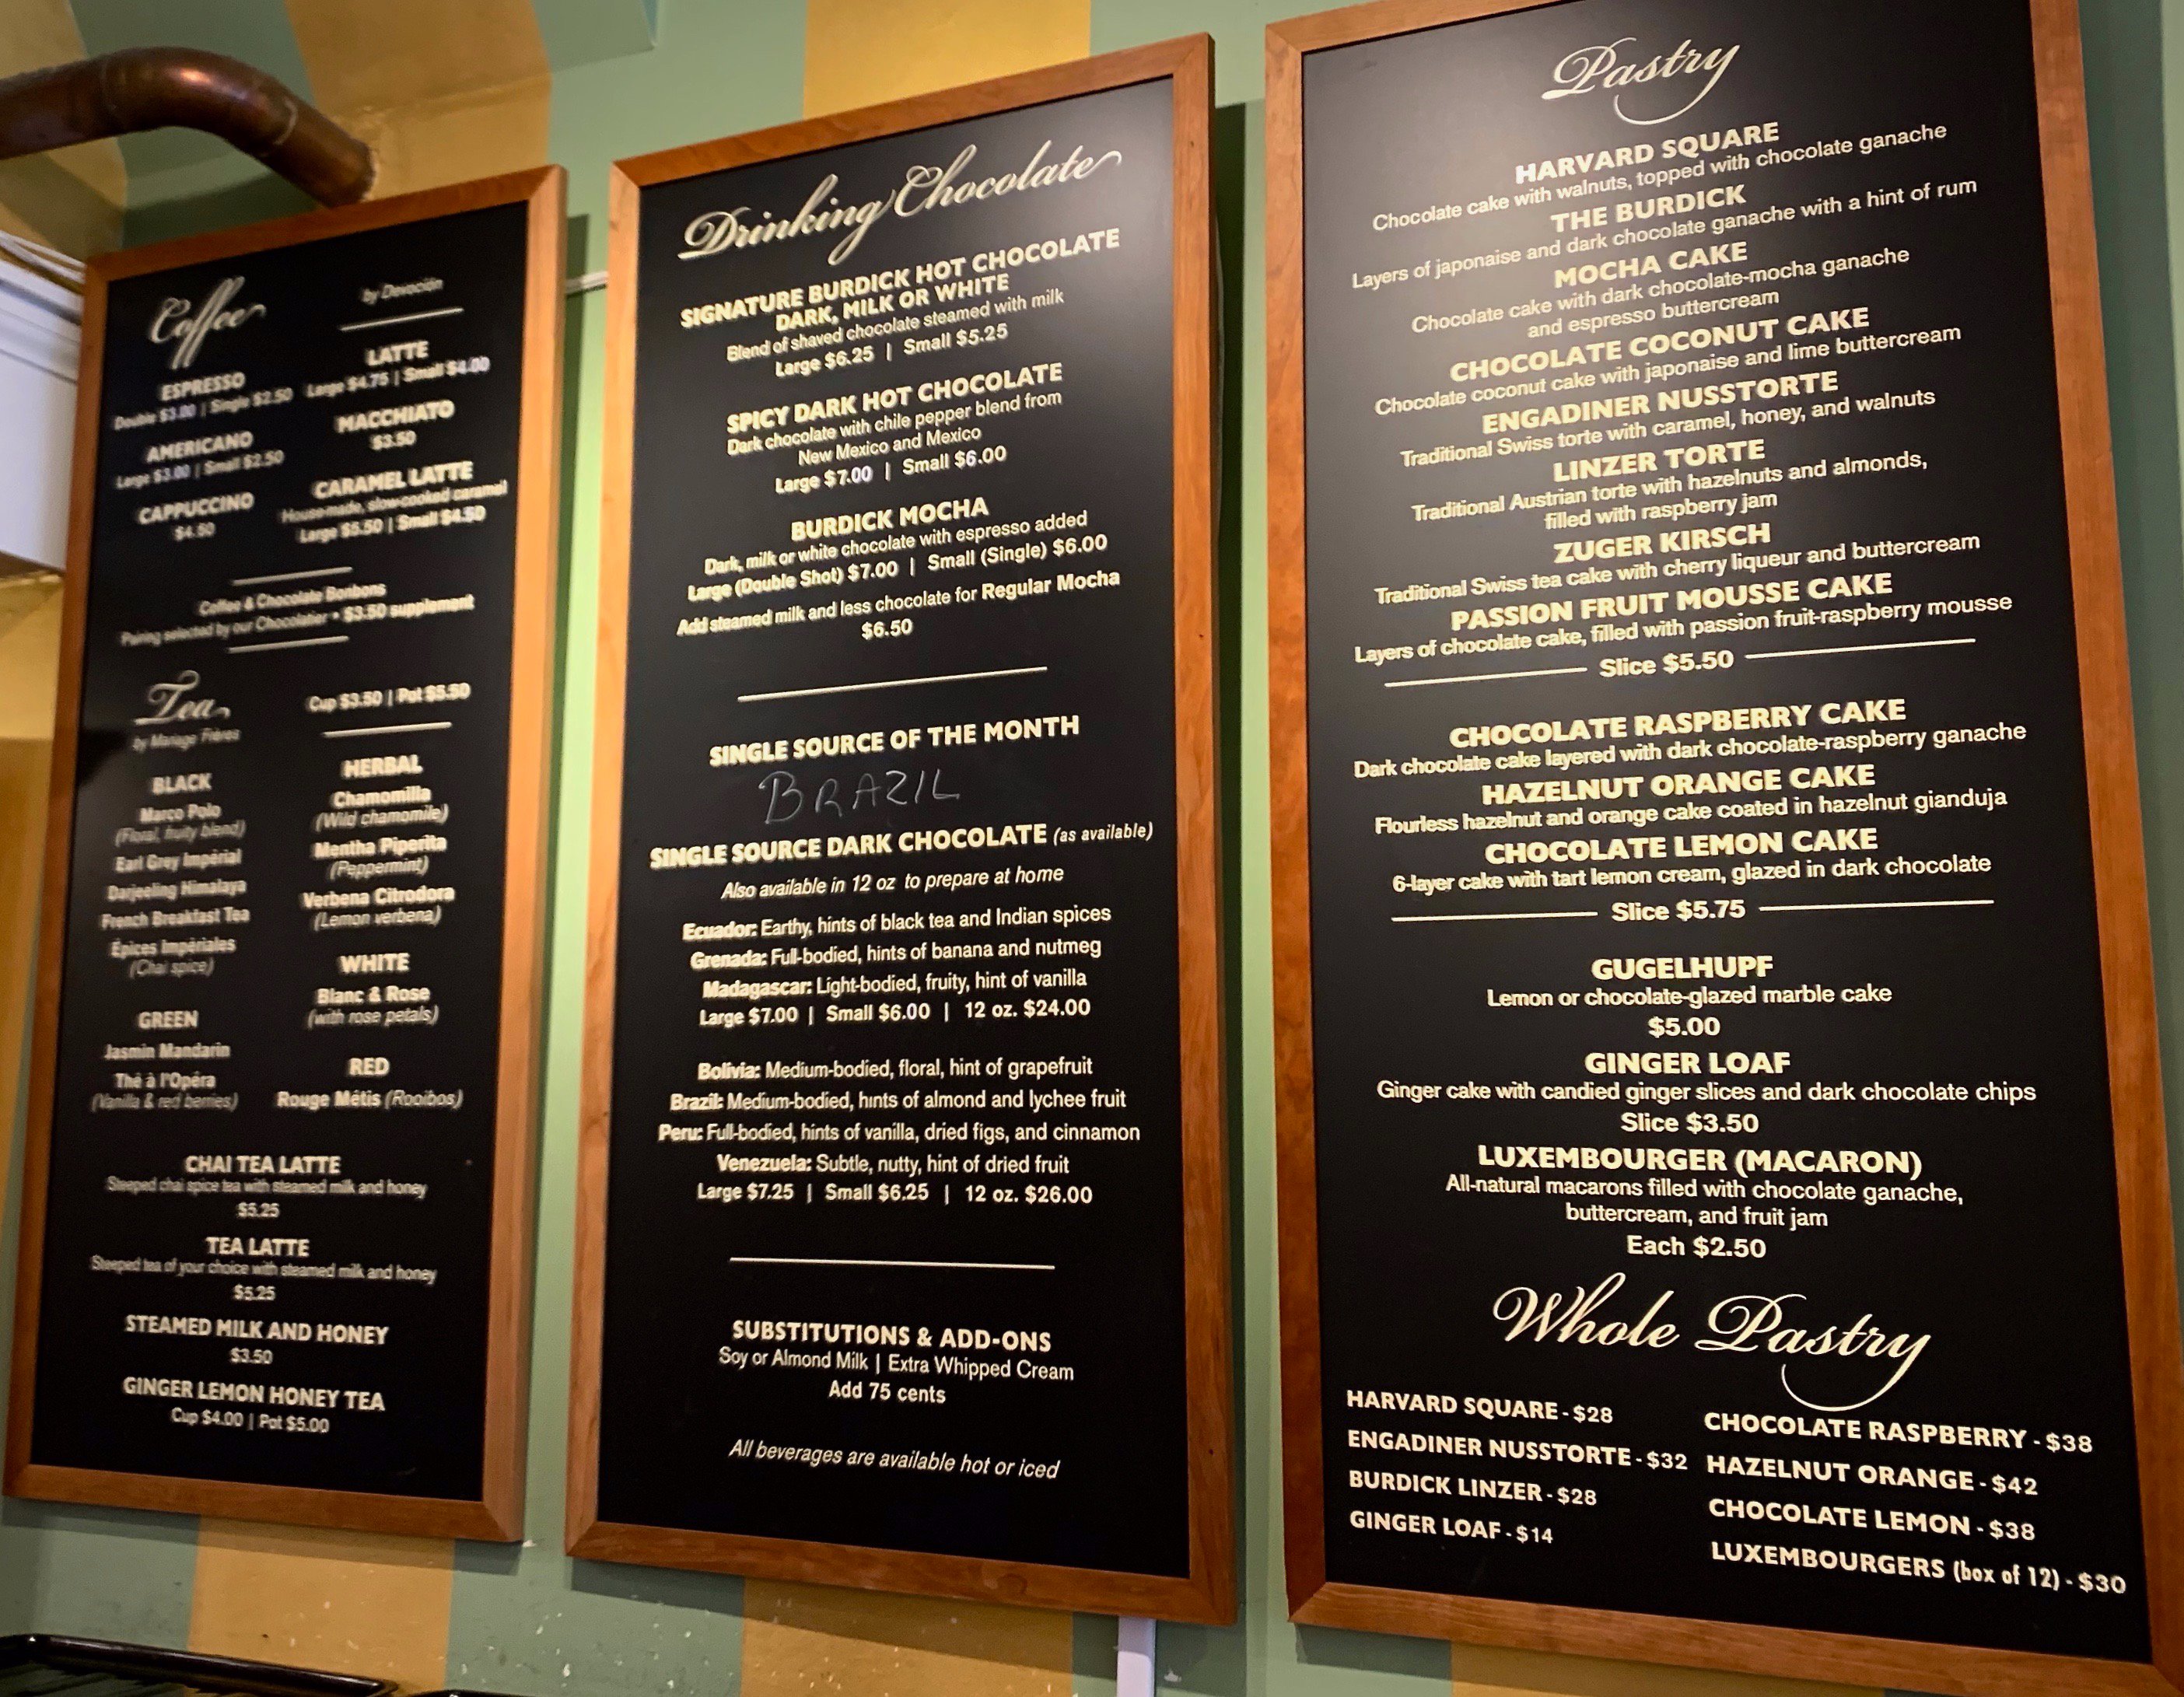 Coffee
by Devoción
ESPRESSO
Double $3.00 | Single $2.50
AMERICANO
Large $3.00 | Small $2.50
CAPPUCCINO
$4.50
LATTE
Large $4.75 | Small $4.00
MACCHIATO
$3.50
CARAMEL LATTE
House-made, slow-cooked caramel
Large $5.50 | Small $4.50
Coffee & Chocolate Bonbons
Pairing selected by our Chocolatier • $3.50 supplement
Tea
by Mariage Frères
Cup $3.50 | Pot $5.50
BLACK
Marco Polo
(Floral, fruity blend)
Earl Grey Impérial
Darjeeling Himalaya
French Breakfast Tea
Épices Impériales
(Chai spice)
GREEN
Jasmin Mandarin
Thé à l'Opéra
(Vanilla & red berries)
HERBAL
Chamomilla
(Wild chamomile)
Mentha Piperita
(Peppermint)
Verbena Citrodora
(Lemon verbena)
WHITE
Blanc & Rose
(with rose petals)
RED
Rouge Métis (Rooibos)
CHAI TEA LATTE
Steeped chai spice tea with steamed milk and honey
$5.25
TEA LATTE
Steeped tea of your choice with steamed milk and honey
$5.25
STEAMED MILK AND HONEY
$3.50
GINGER LEMON HONEY TEA
Cup $4.00 | Pot $5.00
Drinking Chocolate
SIGNATURE BURDICK HOT CHOCOLATE
DARK, MILK OR WHITE
Blend of shaved chocolate steamed with milk
Large $6.25 | Small $5.25
SPICY DARK HOT CHOCOLATE
Dark chocolate with chile pepper blend from
New Mexico and Mexico
Large $7.00 | Small $6.00
BURDICK MOCHA
Dark, milk or white chocolate with espresso added
Large (Double Shot) $7.00 | Small (Single) $6.00
Add steamed milk and less chocolate for Regular Mocha
$6.50
SINGLE SOURCE OF THE MONTH
BRAZIL
SINGLE SOURCE DARK CHOCOLATE (as available)
Also available in 12 oz to prepare at home
Ecuador: Earthy, hints of black tea and Indian spices
Grenada: Full-bodied, hints of banana and nutmeg
Madagascar: Light-bodied, fruity, hint of vanilla
Large $7.00 | Small $6.00 | 12 oz. $24.00
Bolivia: Medium-bodied, floral, hint of grapefruit
Brazil: Medium-bodied, hints of almond and lychee fruit
Peru: Full-bodied, hints of vanilla, dried figs, and cinnamon
Venezuela: Subtle, nutty, hint of dried fruit
Large $7.25 | Small $6.25 | 12 oz. $26.00
SUBSTITUTIONS & ADD-ONS
Soy or Almond Milk | Extra Whipped Cream
Add 75 cents
All beverages are available hot or iced
Pastry
HARVARD SQUARE
Chocolate cake with walnuts, topped with chocolate ganache
THE BURDICK
Layers of japonaise and dark chocolate ganache with a hint of rum
MOCHA CAKE
Chocolate cake with dark chocolate-mocha ganache
and espresso buttercream
CHOCOLATE COCONUT CAKE
Chocolate coconut cake with japonaise and lime buttercream
ENGADINER NUSSTORTE
Traditional Swiss torte with caramel, honey, and walnuts
LINZER TORTE
Traditional Austrian torte with hazelnuts and almonds,
filled with raspberry jam
ZUGER KIRSCH
Traditional Swiss tea cake with cherry liqueur and buttercream
PASSION FRUIT MOUSSE CAKE
Layers of chocolate cake, filled with passion fruit-raspberry mousse
Slice $5.50
CHOCOLATE RASPBERRY CAKE
Dark chocolate cake layered with dark chocolate-raspberry ganache
HAZELNUT ORANGE CAKE
Flourless hazelnut and orange cake coated in hazelnut gianduja
CHOCOLATE LEMON CAKE
6-layer cake with tart lemon cream, glazed in dark chocolate
Slice $5.75
GUGELHUPF
Lemon or chocolate-glazed marble cake
$5.00
GINGER LOAF
Ginger cake with candied ginger slices and dark chocolate chips
Slice $3.50
LUXEMBOURGER (MACARON)
All-natural macarons filled with chocolate ganache,
buttercream, and fruit jam
Each $2.50
Whole Pastry
HARVARD SQUARE - $28
ENGADINER NUSSTORTE - $32
BURDICK LINZER - $28
GINGER LOAF - $14
CHOCOLATE RASPBERRY - $38
HAZELNUT ORANGE - $42
CHOCOLATE LEMON - $38
LUXEMBOURGERS (box of 12) - $30